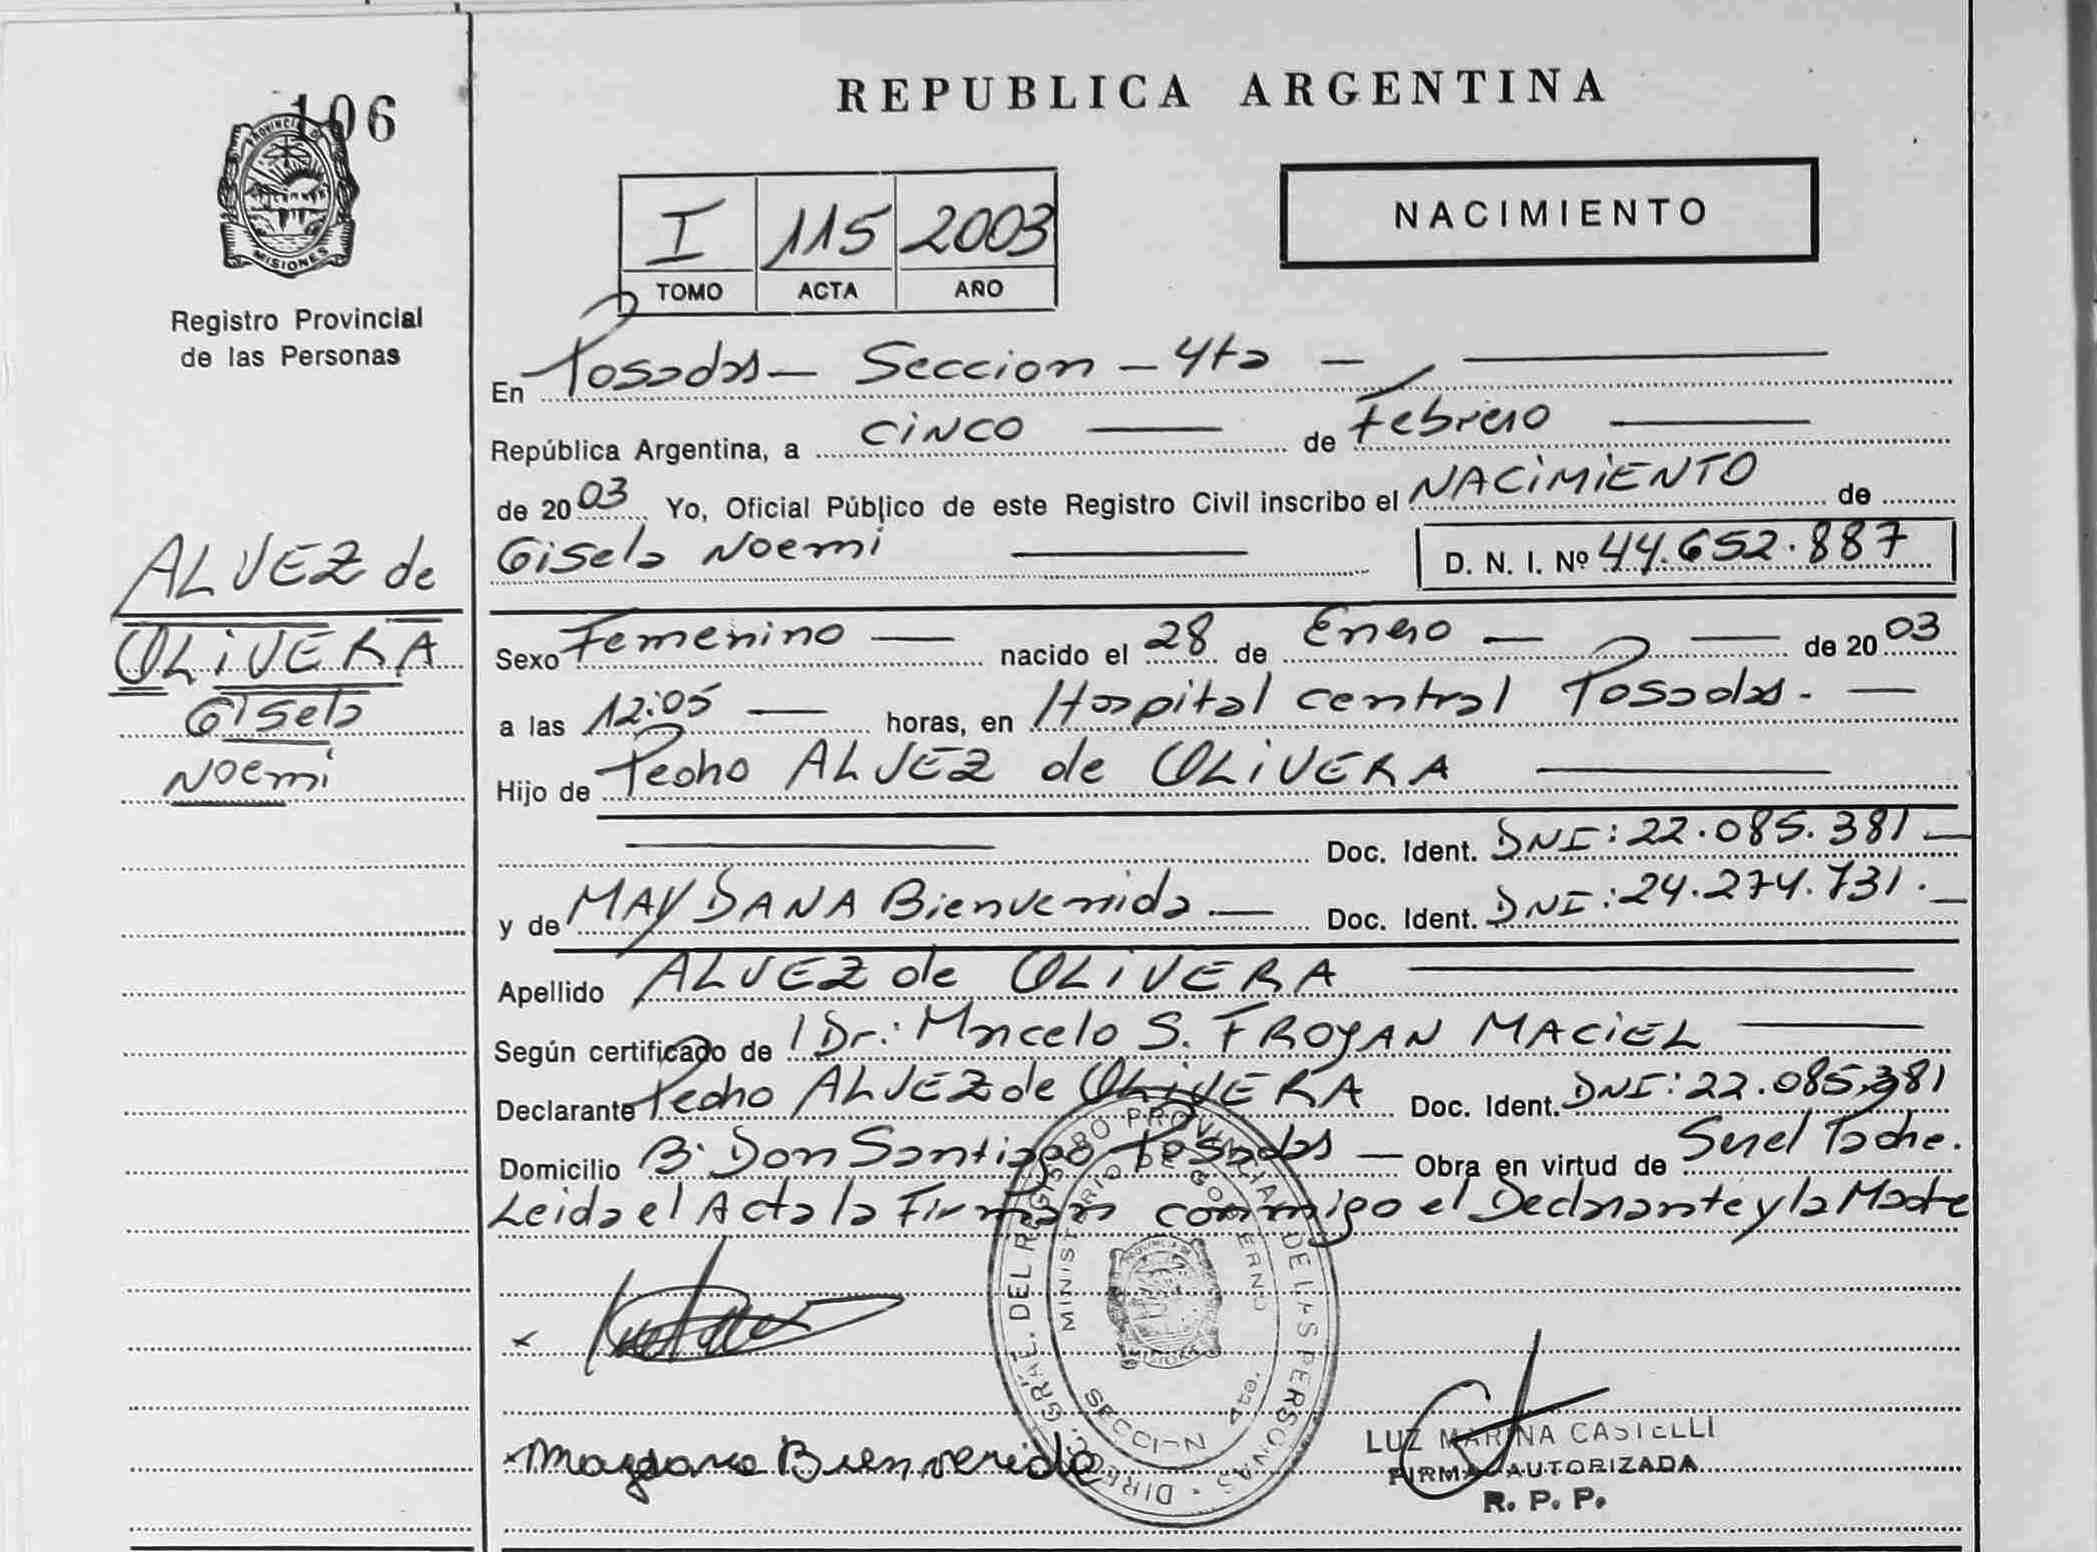 106
PROVINCIA DE
MISIONES
Registro Provincial
de las Personas
ALVEZ de
OLIVERA
Gisela
Noemi
REPUBLICA ARGENTINA
I 115 2003
TOMO ACTA AÑO
NACIMIENTO
En Posadas - Seccion - 4ta -
República Argentina, a CINCO de Febrero
de 2003 Yo, Oficial Público de este Registro Civil inscribo el NACIMIENTO de
Gisela Noemi D. N. I. Nº 44.652.887
Sexo Femenino nacido el 28 de Enero de 2003
a las 12:05 horas, en Hospital central Posadas.
Hijo de Pedro ALVEZ de OLIVERA
Doc. Ident. DNI: 22.085.381
y de MAYDANA Bienvenida Doc. Ident. DNI: 24.274.731.
Apellido ALVEZ de OLIVERA
Según certificado de l Dr: Marcelo S. FROYAN MACIEL
Declarante Pedro ALVEZ de OLIVERA Doc. Ident. DNI: 22.085.381
Domicilio B: Don Santiago Posadas Obra en virtud de Ser el Padre.
Leida el Acta la Firman conmigo el Declarante y la Madre
DIRECC. GRAL. DEL REGISTRO PROVINCIAL DE LAS PERSONAS
MINISTERIO DE GOBIERNO
SECCION 4ta.
Maydana Bienvenida
LUZ MARINA CASTELLI
FIRMA AUTORIZADA
R. P. P.